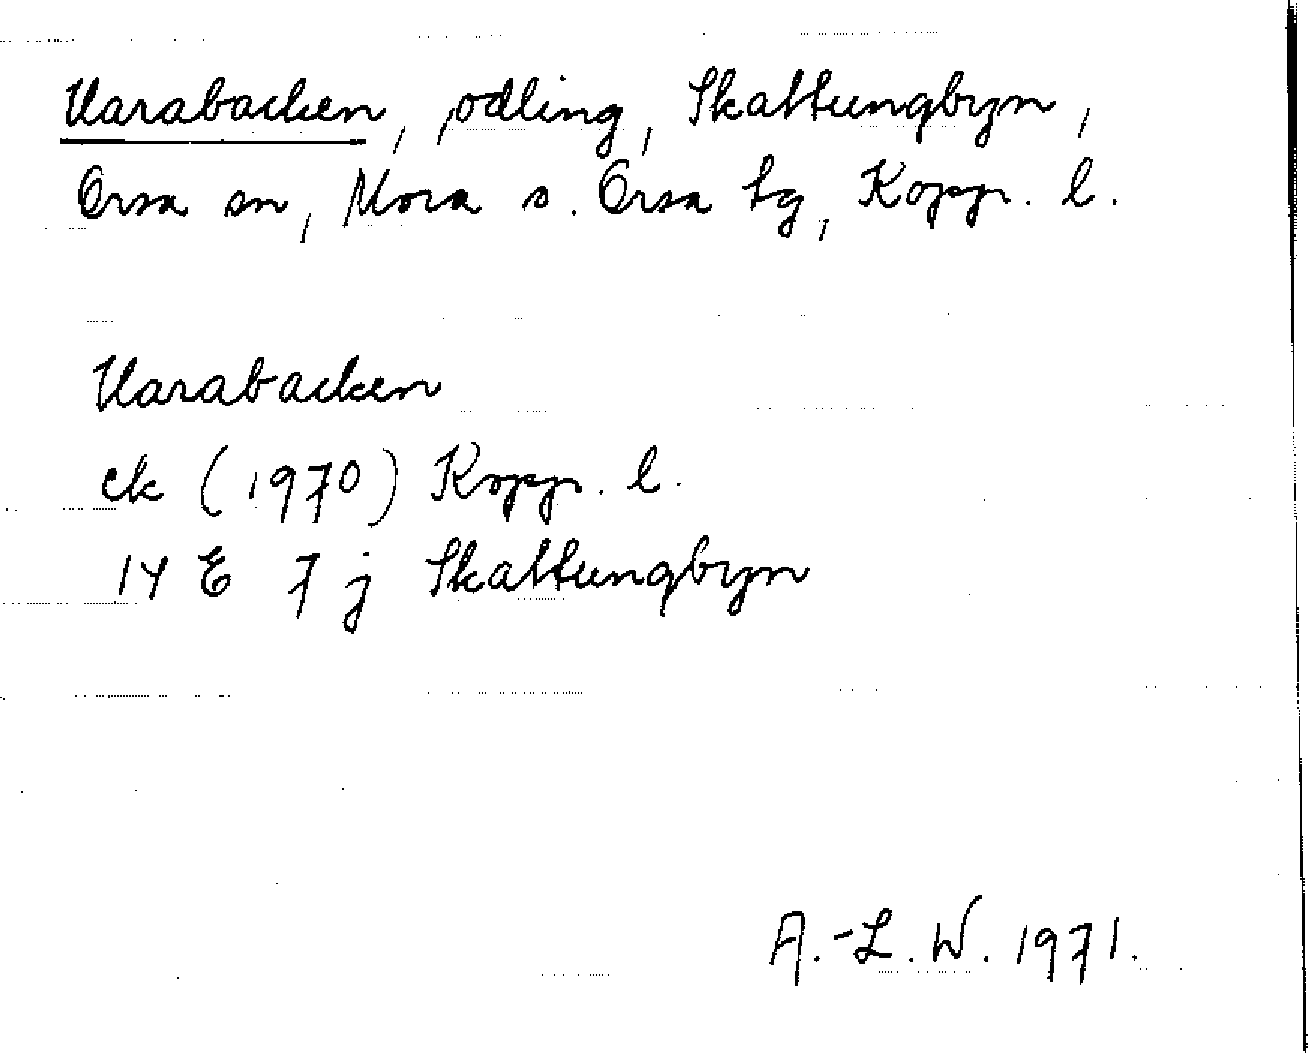 Varabacken, odling, Skattungbyn,
Orsa sn, Mora o. Orsa tg, Kopp. l.
Varabacken
ek (1970) Kopp. l.
14 E 7 j Skattungbyn
A.-L. W. 1971.